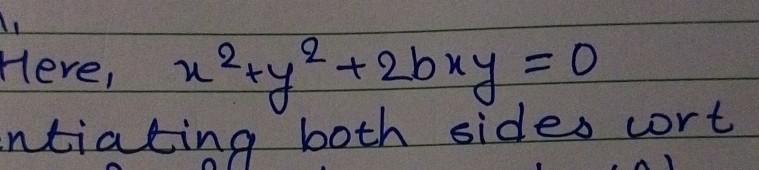 Here, x²+y²+2bxy = 0
ntiating both sides wrt